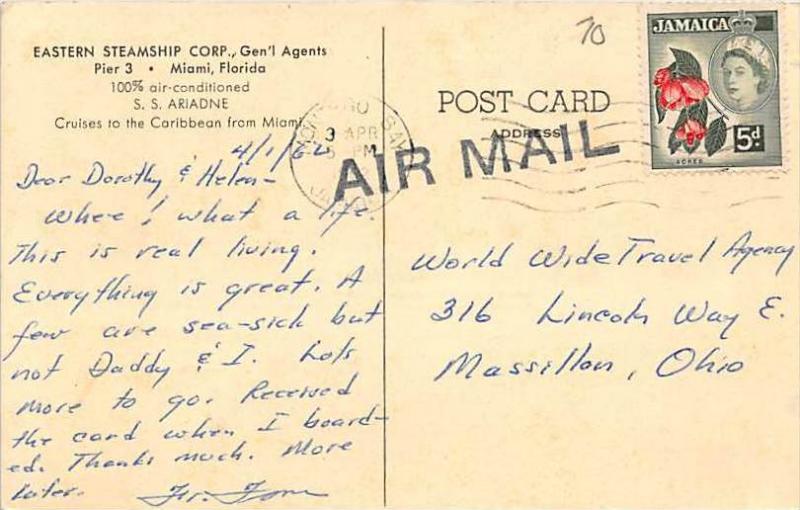 EASTERN STEAMSHIP CORP., Gen'l Agents
Pier 3 • Miami, Florida
100% air-conditioned
S. S. ARIADNE
Cruises to the Caribbean from Miami
4/1/62
Dear Dorothy & Helen -
Whee! what a life.
This is real living.
Everything is great. A
few are sea-sick but
not Daddy & I. Lots
more to go. Received
the card when I board-
ed. Thanks much. More
later. Fr. Tom
70
POST CARD
ADDRESS
AIR MAIL
MONTEGO BAY
3 APR
PM
JAMAICA
5d
ACKEE
World Wide Travel Agency
316 Lincoln Way E.
Massillon, Ohio